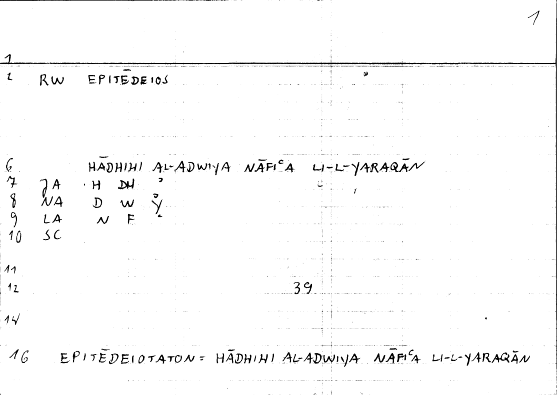 1
1
2 RW EPITĒDEIOS
6 HĀDHIHI AL-ADWIYA NĀFIᶜA LI-L-YARAQĀN
7 JA H DH ʾ
8 NA D W Y
9 LA N F ᶜ
10 SC
11
12 39
14
16 EPITĒDEIOTATON = HĀDHIHI AL-ADWIYA NĀFIᶜA LI-L-YARAQĀN